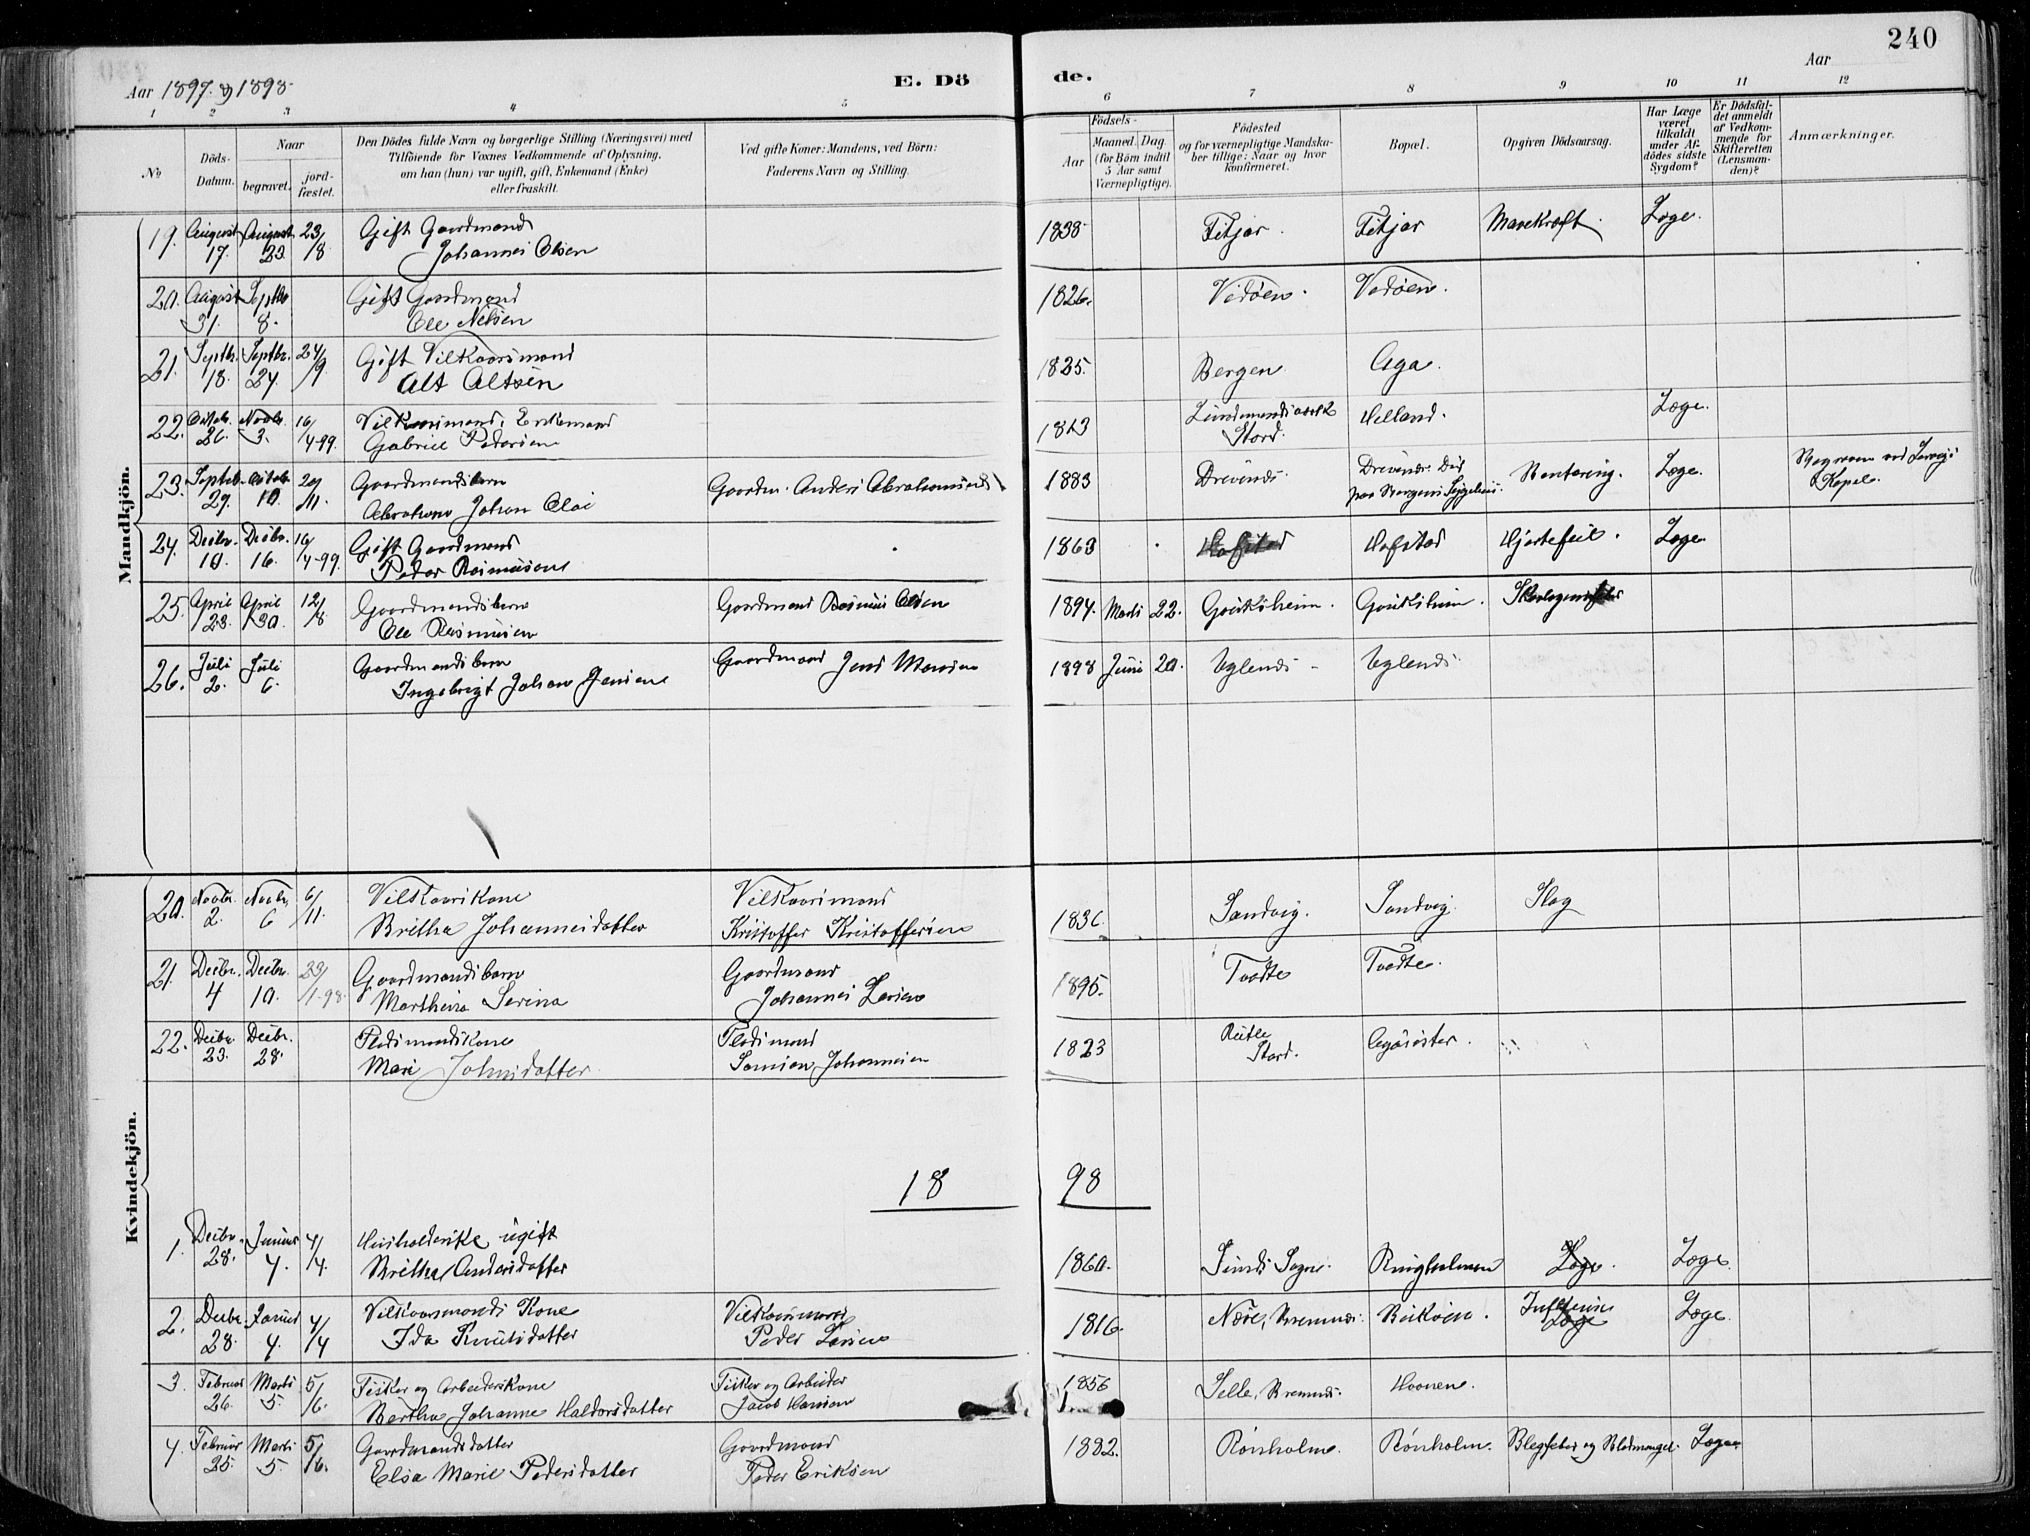 240
Aar 1897 og 1898
E. Dö
de.
Aar
1 2 3 4 5 6 7 8 9 10 11 12
No
Döds-
Datum.
Naar
begravet.
jord-
fæstet.
Den Dödes fulde Navn og borgerlige Stilling (Næringsvei) med
Tilföiende for Voxnes Vedkommende af Oplysning,
om han (hun) var ugift, gift, Enkemand (Enke)
eller fraskilt.
Ved gifte Koner: Mandens, ved Börn:
Faderens Navn og Stilling.
Födsels-
Aar
Maaned. Dag.
(for Börn indtil
5 Aar samt
Værnepligtige).
Födested
og for værnepligtige Mandska-
ber tillige: Naar og hvor
konfirmeret.
Bopæl.
Opgiven Dödsaarsag.
Har Læge
været
tilkaldt
under Af-
dödes sidste
Sygdom?
Er Dödsfal-
det anmeldt
af Vedkom-
mende for
Skifteretten
(Lensman-
den)?
Anmærkninger.
Mandkjön.
19. August 17. August 23. 23/8 Gift Gaardmand
Johannes Olsen 1838 Fitjar. Fitjar Mavekræft. Læge.
20. August 31. Septbr 8. Gift Gaardmand
Ole Nelsen 1826. Vedøen. Vedøen.
21. Septbr. 18. Septbr. 24. 24/9 Gift Vilkaarsmand
Alt Altsen 1825. Bergen Aga.
22. Octob. 26. Novbr. 3. 16/4-99. Vilkaarsmand, Enkemand
Gabriel Pedersen 1813 Stord. Helland. Læge.
23. Septeb. 29. Octob. 10. 20/11. Gaardmandsbarn
Abraham Johan Olai Gaardm. Anders Abrahamsens 1883 Drevnds. Læge.
Kapel.
24. Decbr. 10. Decbr. 16. 16/4-99. Gift Gaardmand
Peder Rasmusen 1863 Hafstad Hafstad Hjertefeil. Læge
25. April 23. April 30. 12/8 Gaardmandsbarn
Ole Rasmusen Gaardmand Rasmus Olsen 1894. Marts 22. Gaukheim. Gaukheim.
26. Juli 2. Juli 6. Gaardmandsbarn
Ingebrigt Johan Jensen Gaardmand Jens Monsen 1898 Juni 20. Uglends Uglends
Kvindekjön.
20. Novbr. 2. Novbr. 6 6/11. Vilkaarskone
Britha Johannesdatter Vilkaarsmand
Kristoffer Kristoffersen 1836. Sandvig. Sandvig. Slag
21. Decbr. 4 Decbr. 10. 23/1-98. Gaardmandsbarn
Marthina Serina Gaardmand
Johannes Larsen 1895. Tvedte Tvedte.
22. Decbr. 23. Decbr. 28. Pladsmandskone
Mari Johnsdatter Pladsmand
Samson Johannesen 1823 Rutle
Stord. Agdester.
18 98
1. Decbr. 28. Januar 4. 4/4. Husholderske ugift
Britha Andersdatter 1860. Sunds Sogn. Ringholmen Læge. Læge.
2. Decbr. 28. Januar 4. 4/4 Vilkaarsmands Kone
Ida Knutsdatter Vilkaarsmand
Peder Larsen 1816. Næse, Bremnes. Læge Læge.
3. Februar 26. Marts 5. 5/6. Fisker og Arbeiderskone
Bertha Johanne Haldorsdatter Fisker og Arbeider
Jacob Hansen 1856 Selle, Bremnes. Hovnen.
4. Februar 25. Marts 5. 5/6. Gaardmandsdatter
Elsa Marie Pedersdatter Gaardmand
Peder Eriksen 1882. Rønholm. Rønholm. Blegfeber og Blodmangel. Læge